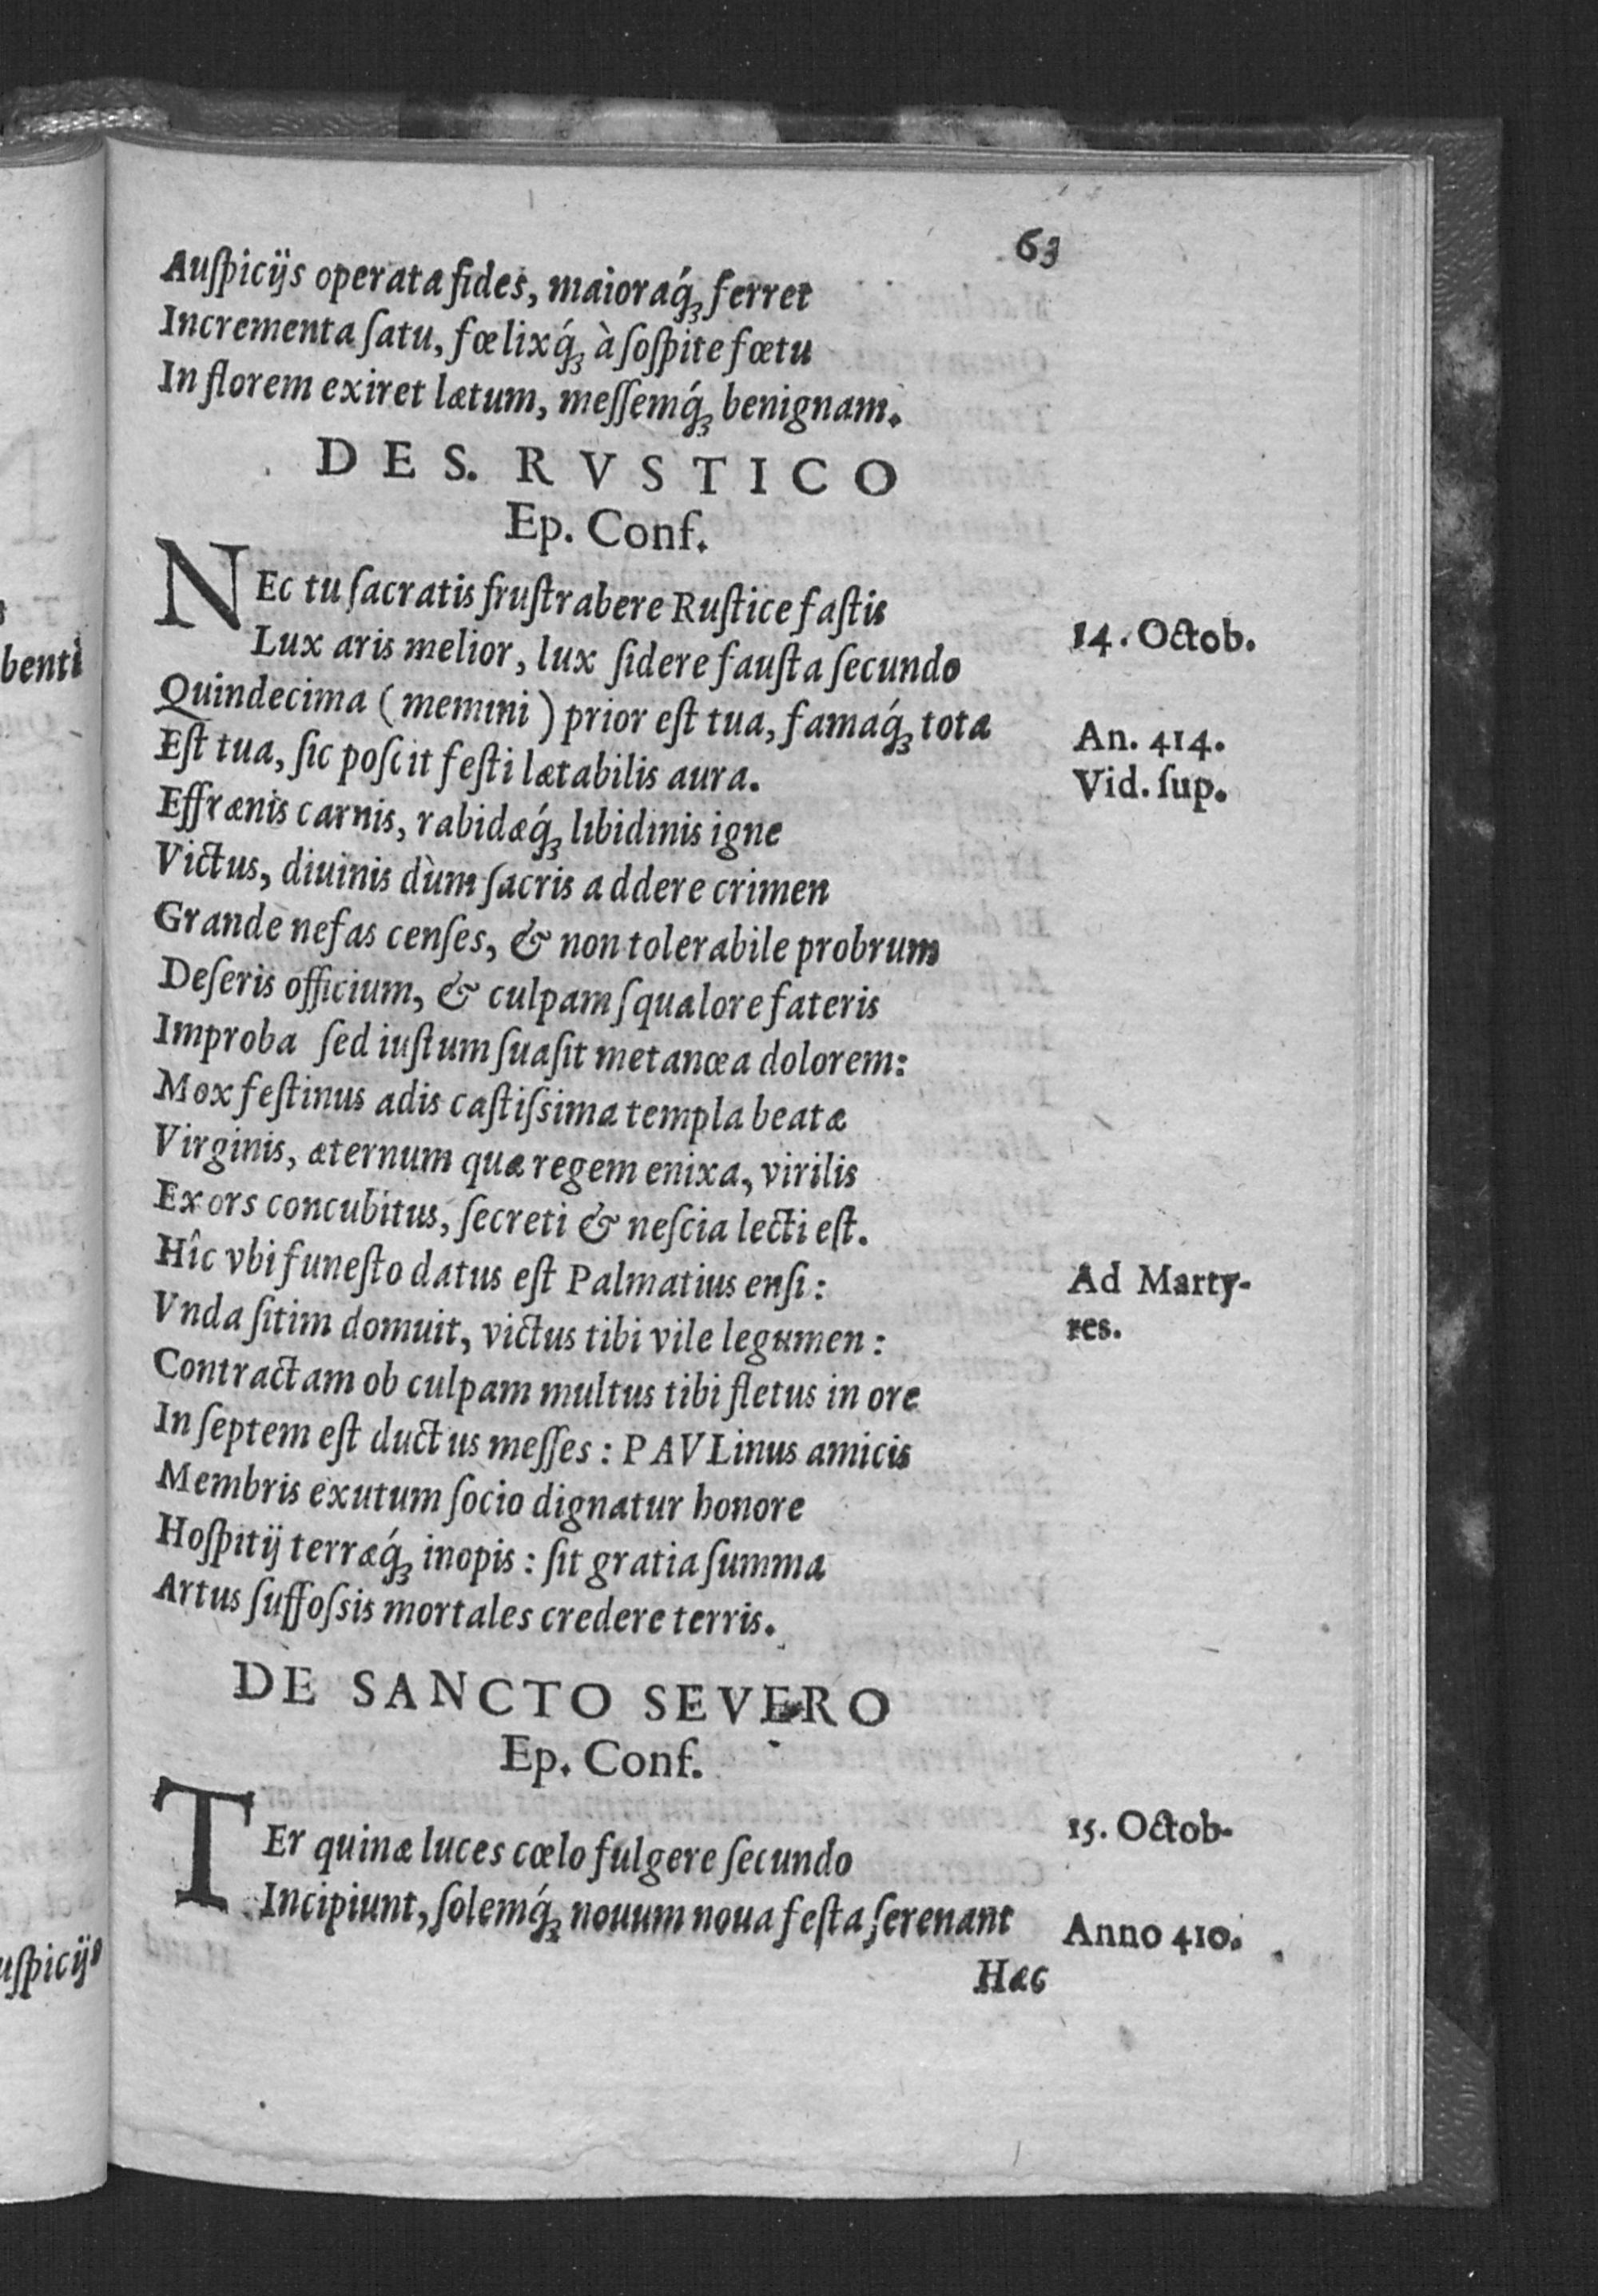 63
Auſpicijs operata fides, maioraq́ꝫ ferret
Incrementa ſatu, fœlixq́ꝫ à ſoſpite fœtu
In florem exiret lætum, meſſemq́ꝫ benignam.
DE S. RVSTICO
Ep. Conf.
NEc tu ſacratis fruſtrabere Ruſtice faſtis
14. Octob.
Lux aris melior, lux ſidere fauſta ſecundo
Quindecima (memini) prior eſt tua, famaq́ꝫ tota
An. 414.
Eſt tua, ſic poſcit feſti lætabilis aura.
Vid. ſup.
Effrænis carnis, rabidæq́ꝫ libidinis igne
Victus, diuinis dùm ſacris addere crimen
Grande nefas cenſes, & non tolerabile probrum
Deſeris officium, & culpam ſqualore fateris
Improba ſed iuſtum ſuaſit metanœa dolorem:
Mox feſtinus adis caſtiſsima templa beatæ
Virginis, æternum quæ regem enixa, virilis
Exors concubitus, ſecreti & neſcia lecti eſt.
Hîc vbi funeſto datus eſt Palmatius enſi:
Ad Marty-
res.
Vnda ſitim domuit, victus tibi vile legumen:
Contractam ob culpam multus tibi fletus in ore
In ſeptem eſt ductus meſſes: PAVLinus amicis
Membris exutum ſocio dignatur honore
Hoſpitij terræq́ꝫ inopis: ſit gratia ſumma
Artus ſuffoſsis mortales credere terris.
DE SANCTO SEVERO
Ep. Conf.
TEr quinæ luces cœlo fulgere ſecundo
15. Octob.
Incipiunt, ſolemq́ꝫ nouum noua feſta ſerenant
Anno 410.
Hæc
benti
uſpicijs